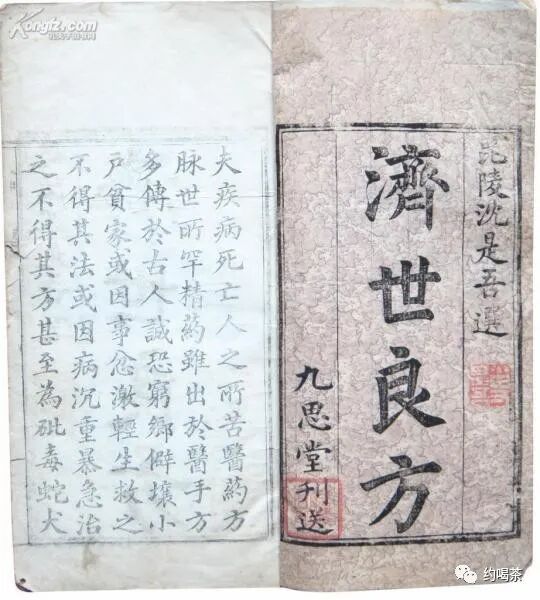 毘陵沈是吾選
濟世良方
九思堂刊送
夫疾病死亡人之所苦醫藥方
脉世所罕精藥雖出於醫手方
多傳於古人誠恐窮鄉僻壤小
戶貧家或因事忿激輕生救之
不得其法或因病沉重暴急治
之不得其方甚至為砒毒蛇犬
Kongfz.com
孔夫子旧书网
约喝茶